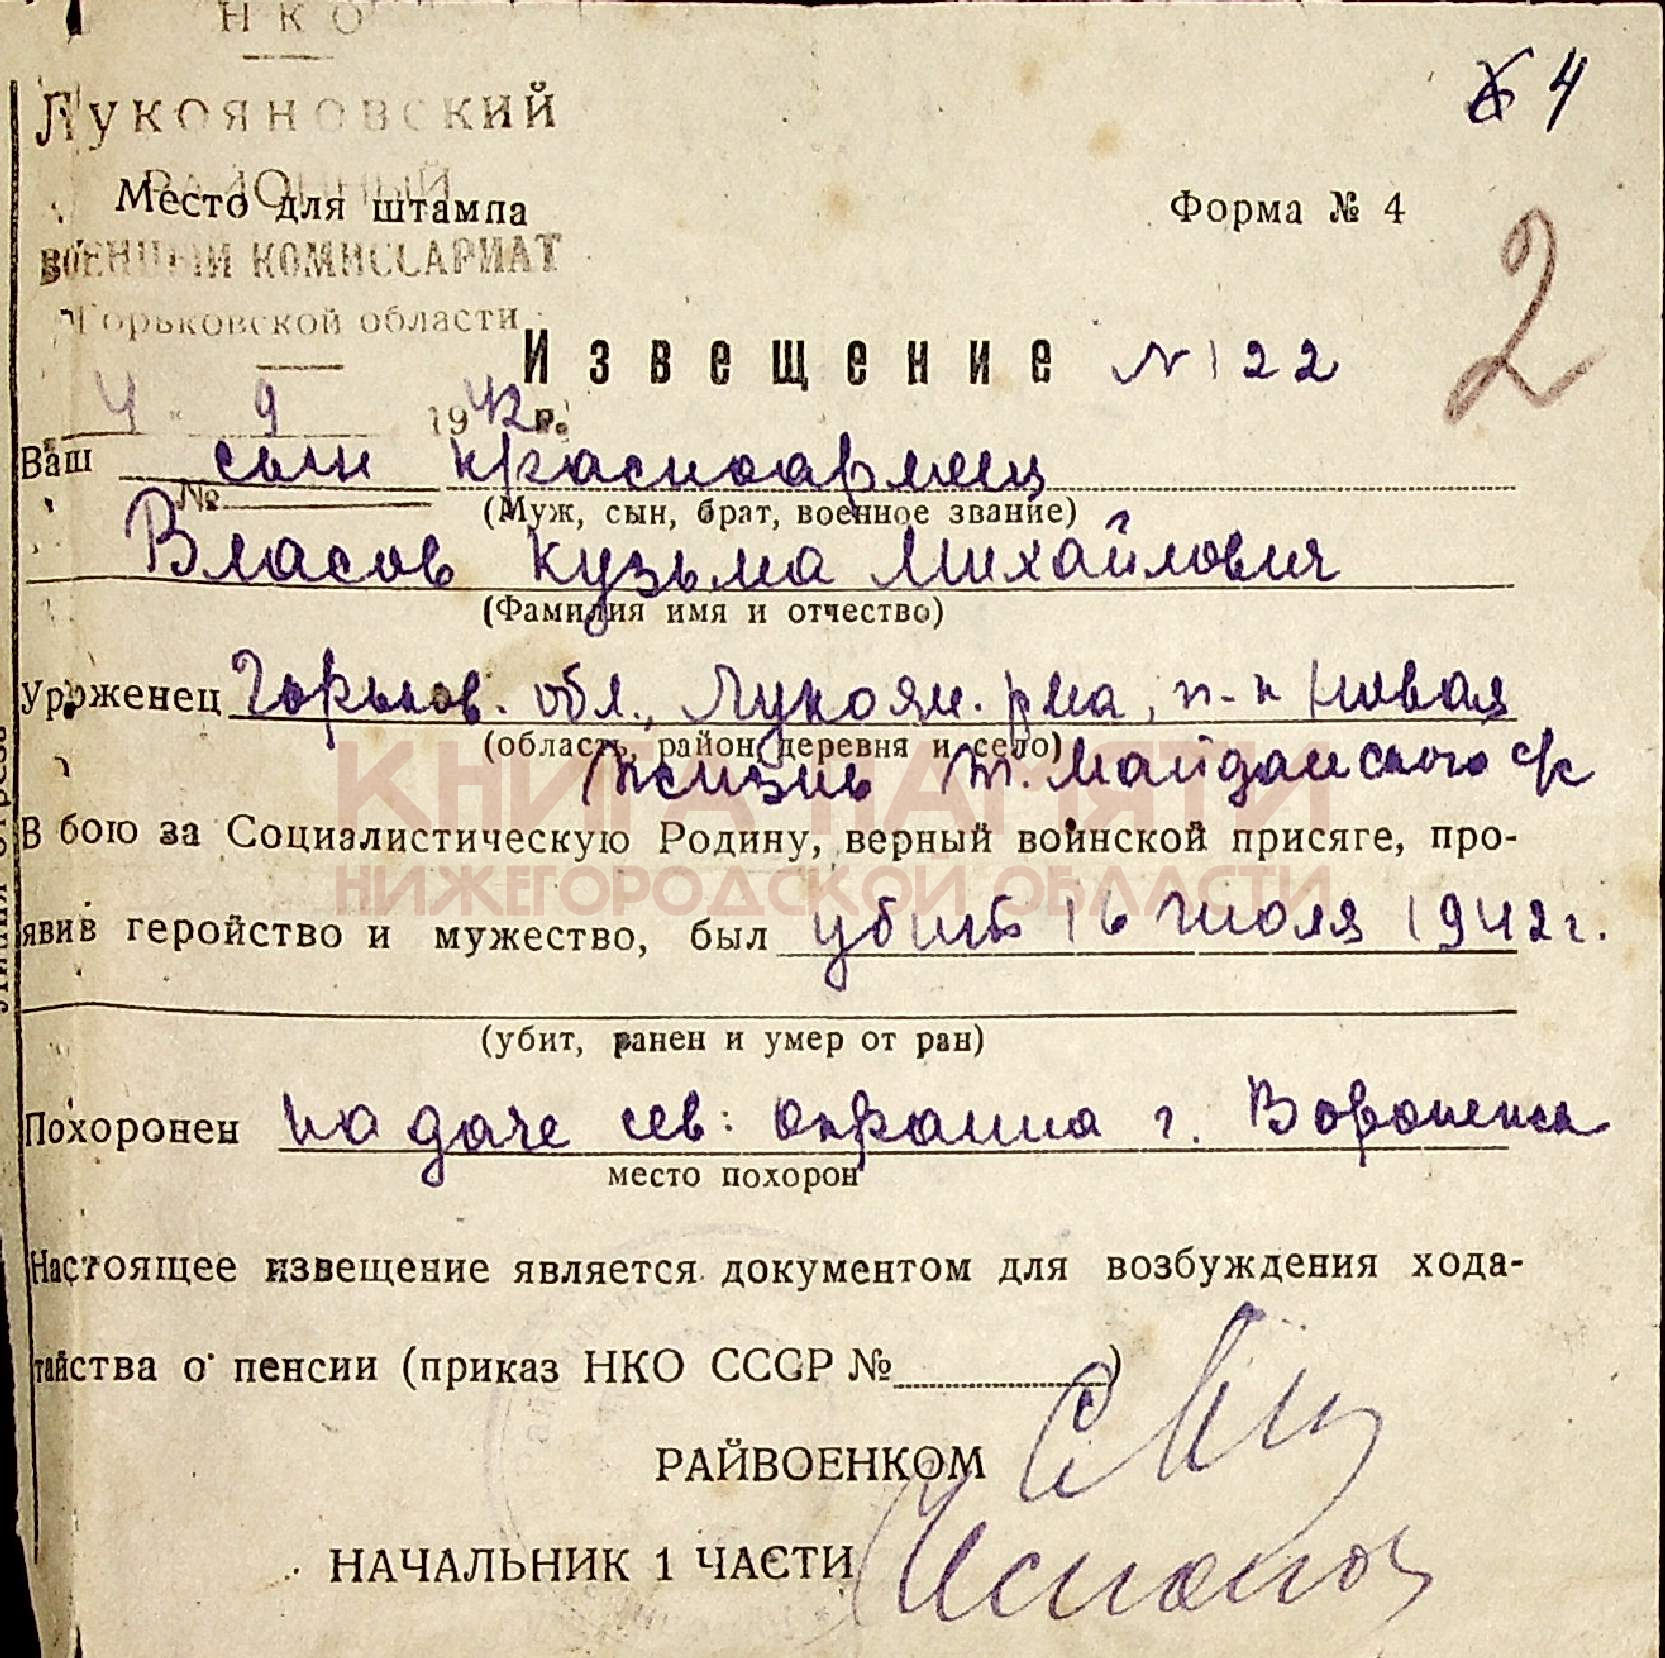 НКО
Лукояновский
РАЙОННЫЙ
Место для штампа
Форма № 4
4
2
ВОЕННЫЙ КОМИССАРИАТ
Горьковской области
Извещение N 122
4 " 9 1942 г.
Ваш сын красноармеец
№
(Муж, сын, брат, военное звание)
Власов Кузьма Михайлович
(Фамилия имя и отчество)
Уроженец Горьков. обл., Лукоян. р-на, п-к Новая
(область, район, деревня и село)
жизнь Т. Майданского с/с
КНИГА ПАМЯТИ
В бою за Социалистическую Родину, верный воинской присяге, про-
НИЖЕГОРОДСКОЙ ОБЛАСТИ
явив геройство и мужество, был убит 16 июля 1942 г.
(убит, ранен и умер от ран)
Похоронен на даче сев: окраина г. Воронежа
место похорон
Настоящее извещение является документом для возбуждения хода-
тайства о пенсии (приказ НКО СССР № )
РАЙВОЕНКОМ
НАЧАЛЬНИК 1 ЧАСТИ